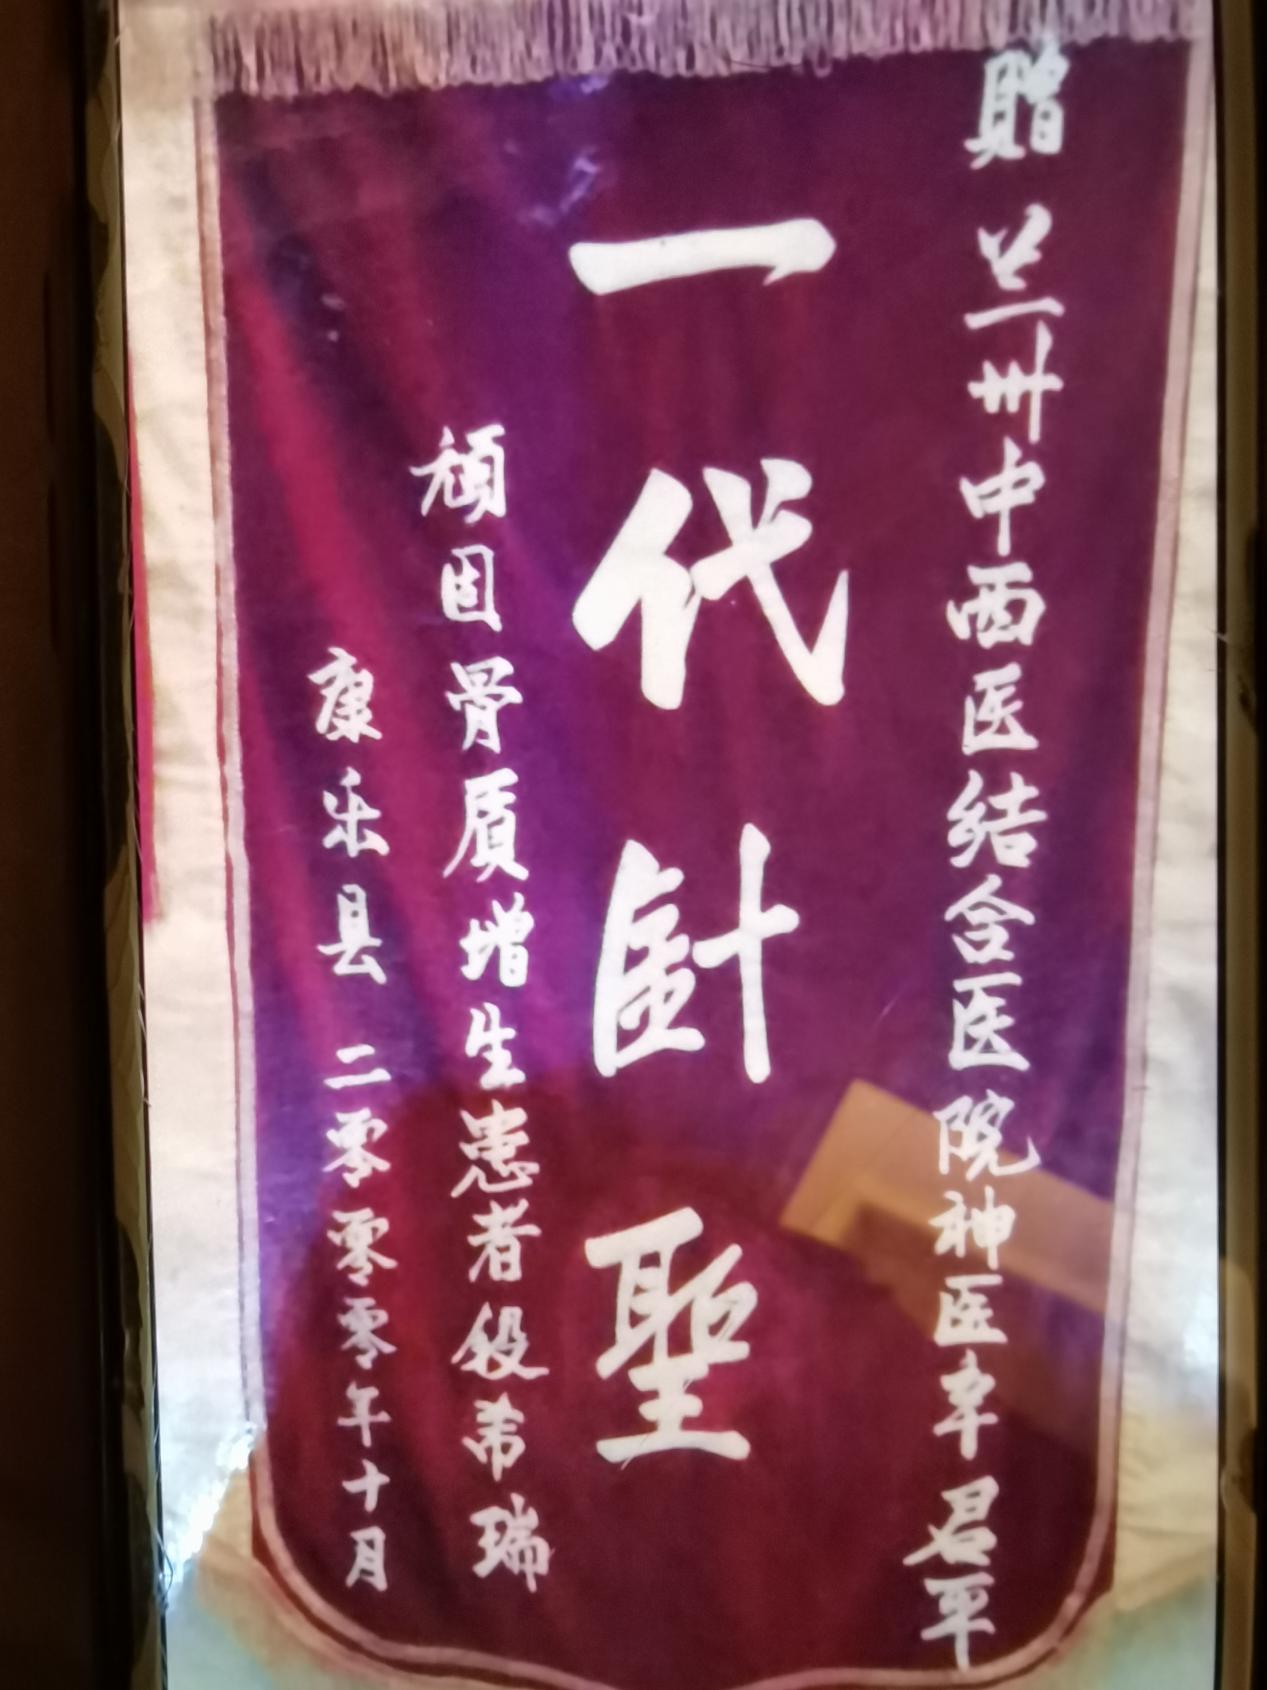 贈 兰州中西医结合医院神医辛君平
一代針聖
頑固骨质增生患者段芾瑞
康乐县 二零零零年十月